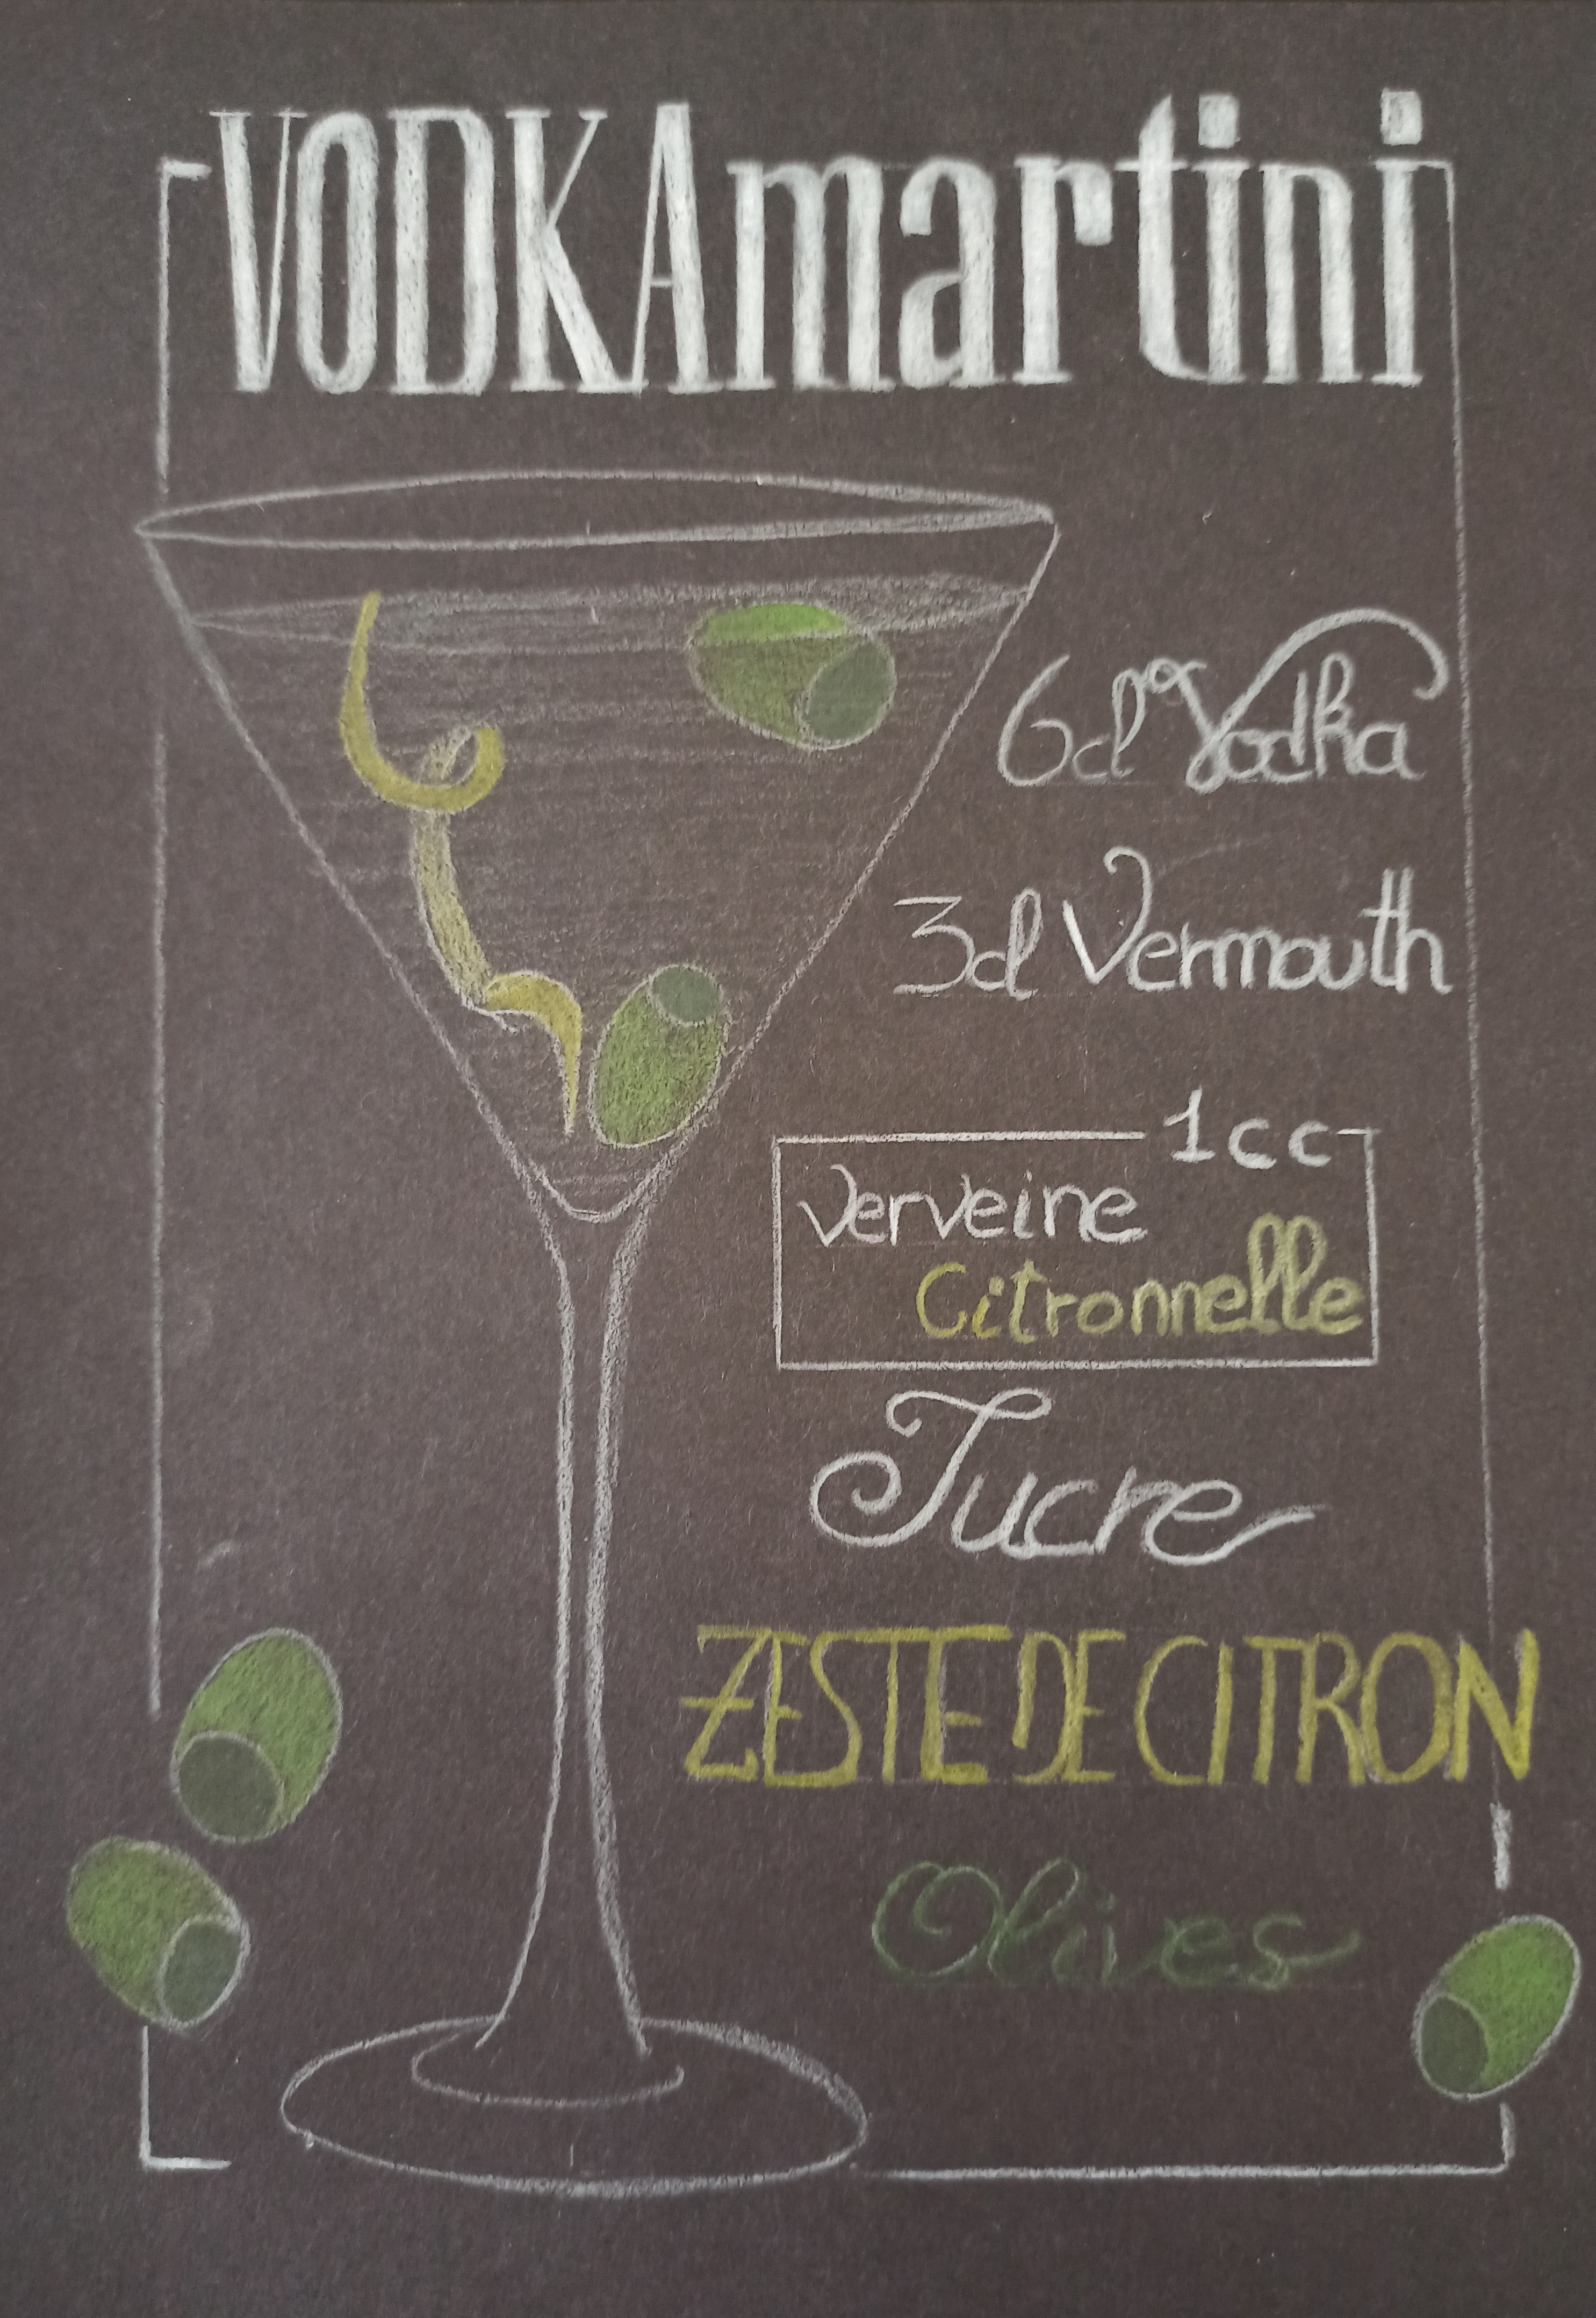 VODKAmartini
6cl Vodka
3cl Vermouth
1cc
Verveine
Citronnelle
Sucre
ZESTE DE CITRON
Olives